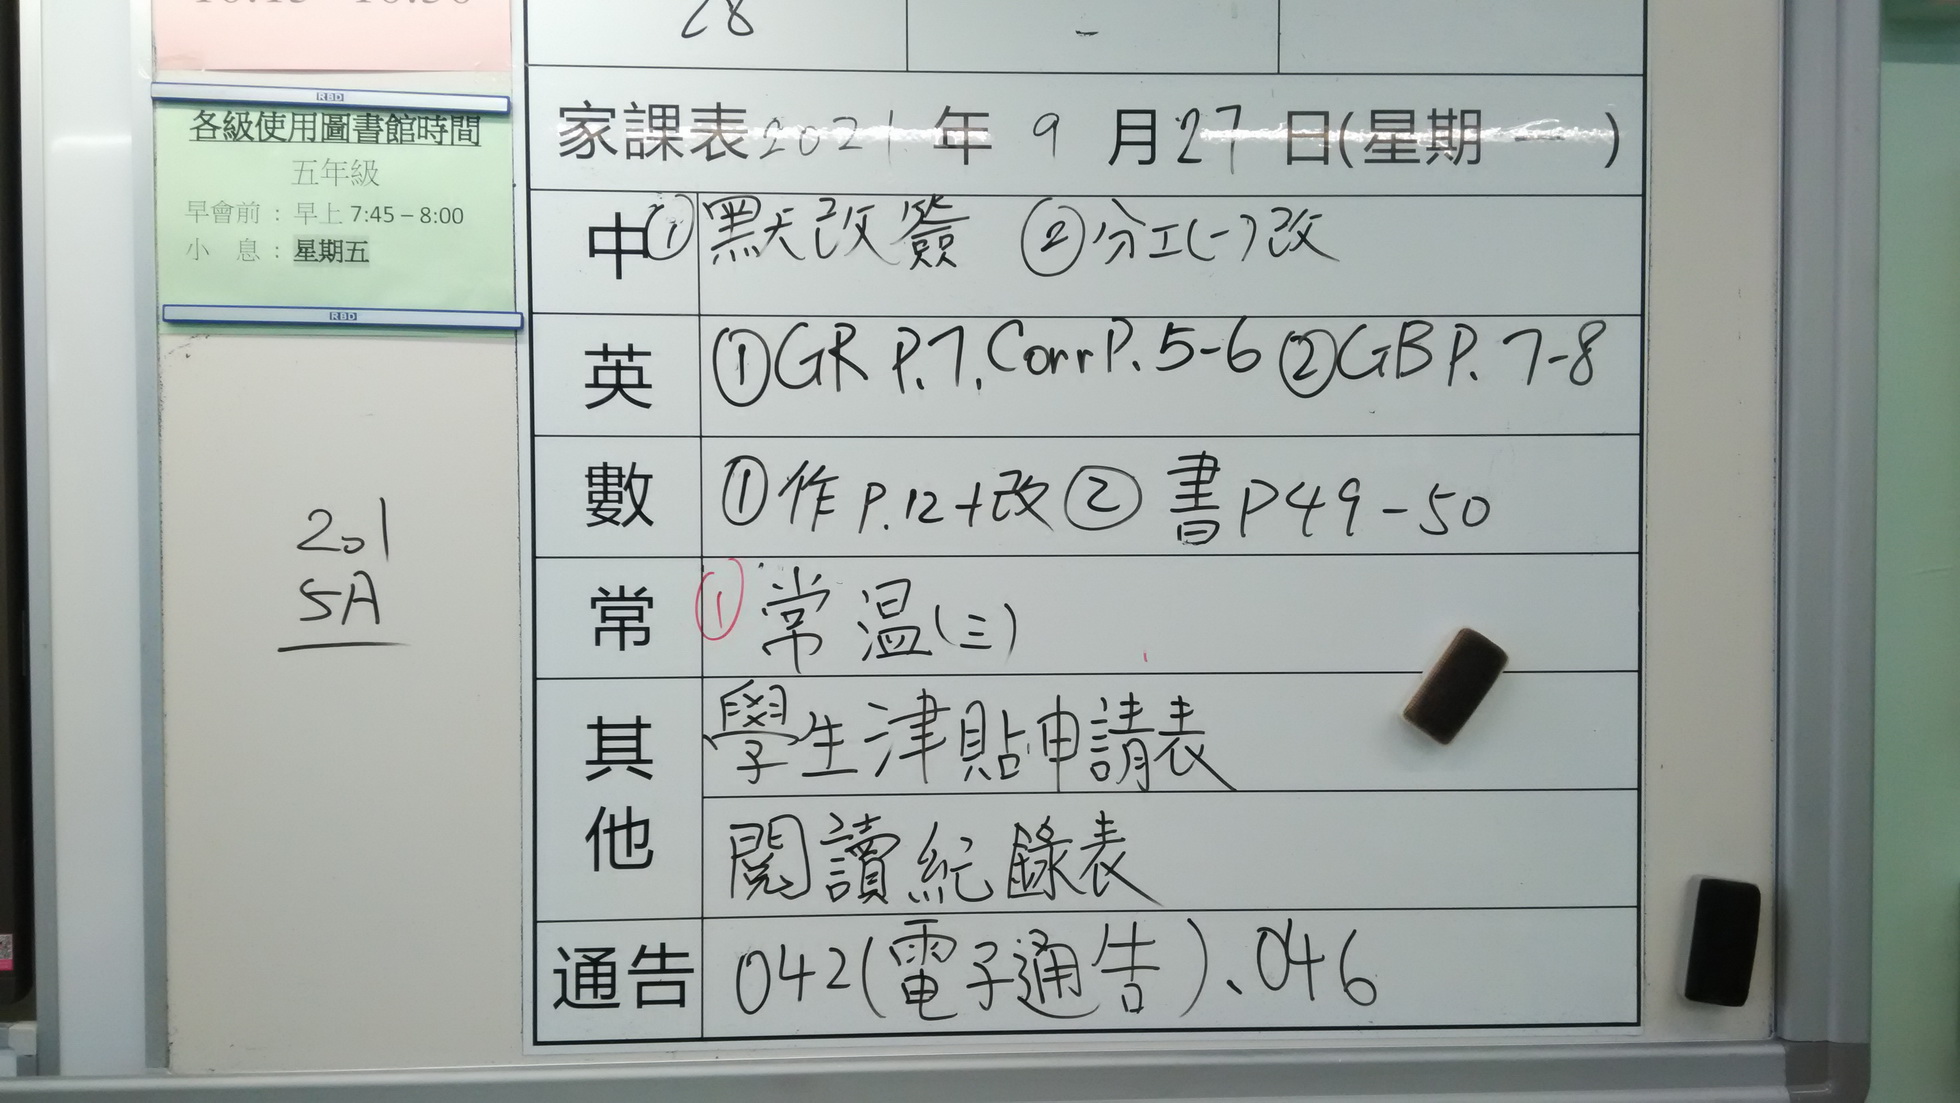 28
-
RBD
各級使用圖書館時間
五年級
早會前 : 早上 7:45 – 8:00
小 息 : 星期五
RBD
201
5A
家課表 2021 年 9 月 27 日(星期 一 )
中 ① 默改簽 ② 分工(一)改
英 ① GR P.7, Corr P. 5-6 ② GB P. 7-8
數 ① 作 P.12+改 ② 書 P49-50
常 ① 常溫(三)
其他
學生津貼申請表
閱讀紀錄表
通告 042(電子通告)、046